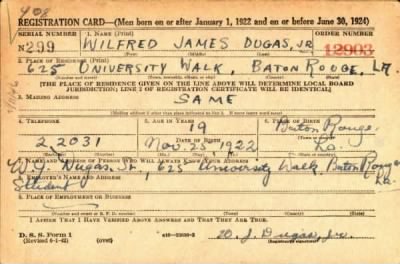 408
REGISTRATION CARD—(Men born on or after January 1, 1922 and on or before June 30, 1924)
SERIAL NUMBER 1. NAME (Print) ORDER NUMBER
N299 WILFRED JAMES DUGAS, JR. 12903
2. PLACE OF RESIDENCE (Print)
625 UNIVERSITY WALK, BATON ROUGE, LA.
[THE PLACE OF RESIDENCE GIVEN ON THE LINE ABOVE WILL DETERMINE LOCAL BOARD
JURISDICTION; LINE 2 OF REGISTRATION CERTIFICATE WILL BE IDENTICAL]
3. MAILING ADDRESS
SAME
4. TELEPHONE 5. AGE IN YEARS 6. PLACE OF BIRTH
19 Baton Rouge
2,2031 DATE OF BIRTH
Nov. 25 1922 La.
7. NAME AND ADDRESS OF PERSON WHO WILL ALWAYS KNOW YOUR ADDRESS
W. J. Dugas, Sr., 625 University Walk, Baton Rouge La.
8. EMPLOYER'S NAME AND ADDRESS
Student
9. PLACE OF EMPLOYMENT OR BUSINESS
I AFFIRM THAT I HAVE VERIFIED ABOVE ANSWERS AND THAT THEY ARE TRUE.
D. S. S. Form 1
(Revised 6-1-42) (over) W. J. Dugas, Jr.
(Registrant's signature)